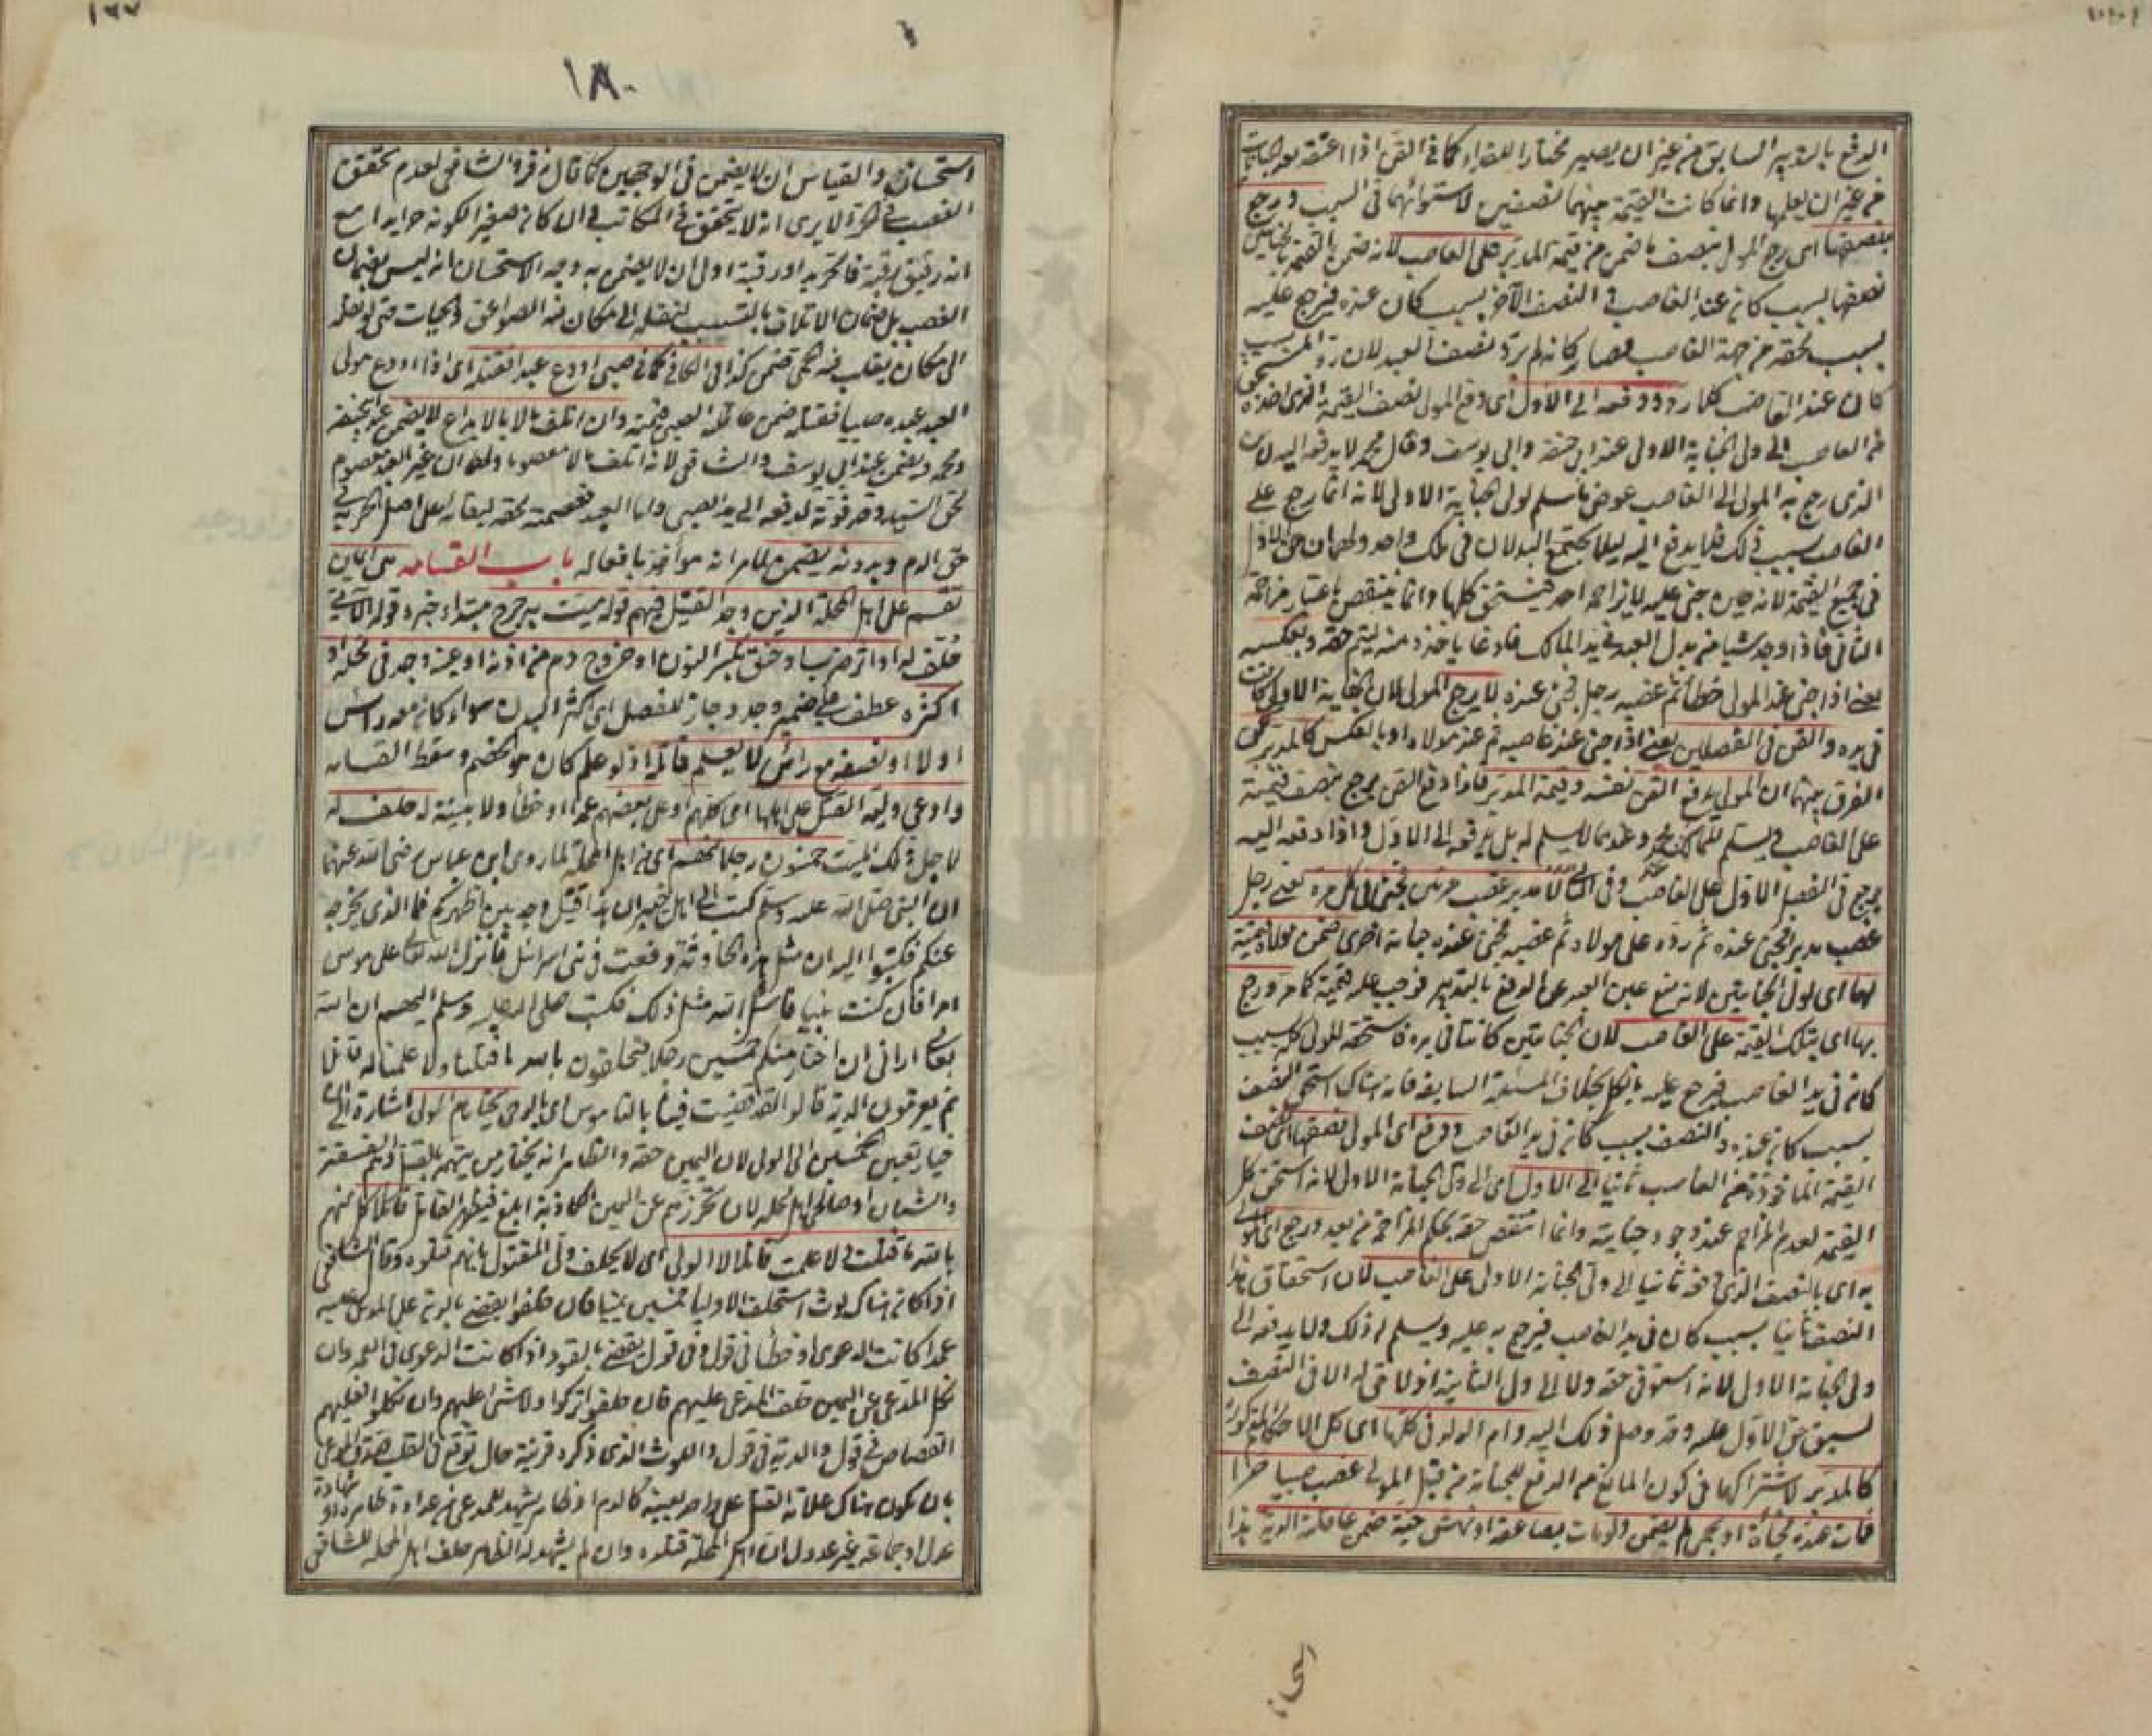 الدفع بالتدبير السابق من غير ان يصير مختارا للفداء كما في القن اذا اعتقه بعد الجنايات
من غير ان يعلمها وانما كانت القيمة بينهما نصفين لاستوائهما في السبب ورجع
بنصفها اى رجع المولى بنصف ما ضمن من قيمة المدبر على الغاصب لانه ضمن القيمة بالجنايتين
نصفها بسبب كان عند الغاصب و النصف الآخر بسبب كان عنده فيرجع عليه
بسبب لحقه من جهة الغاصب فصار كانه لم يرد نصف العبد لان رد المستحق بسبب
كان عند الغاصب كلا رد ودفعه الى الاول اى دفع المولى نصف القيمة الذى اخذه
من الغاصب الى ولى الجناية الاولى عند ابى حنيفة وابى يوسف وقال محمد لا يدفعه اليه لان
الذى رجع به المولى الى الغاصب عوض ما سلم لولى الجناية الاولى لانه انما رجع على
الغاصب بسبب ذلك فلا يدفع اليه ليلا يجتمع البدلان في ملك واحد ولهما ان حق الاول
في جميع القيمة لانه حين جنى عليه لا يزاحمه احد فيستحق كلها وانما ينتقص باعتبار مزاحمة
الثاني فاذا وجد شيئا من بدل العبد في يد المالك فارغا ياخذه منه ليتم حقه وبعكسه
يعنى اذا جنى عند المولى خطأ ثم غصبه رجل فجنى عنده لا يرجع المولى لان الجناية الاولى كانت
في يده والقن في الفصلين يعنى اذا جنى عند غاصبه ثم عند مولاه او بالعكس كالمدبر لكن
الفرق بينهما ان المولى يدفع القن نفسه وقيمة المدبر فاذا دفع القن يرجع بنصف قيمته
على الغاصب ويسلم للمالك عند محمد وعندهما لا يسلم له بل يدفعه الى الاول واذا دفعه اليه
يرجع في الفصل الاول على الغاصب وفي الثاني لا مدبر غصب مرتين فجنى في كل مرة يعنى رجل
غصب مدبرا فجنى عنده ثم رده على مولاه ثم غصبه فجنى عنده جناية اخرى ضمن مولاه قيمته
لهما اى لولى الجنايتين لانه منع عين العبد عن الدفع بالتدبير فوجب عليه قيمته كما مر ورجع
بها اى بتلك القيمة على الغاصب لان الجنايتين كانتا في يده فاستحقه المولى كله بسبب
كان في يد الغاصب فيرجع عليه بالكل بخلاف المسئلة السابقة فانه هناك استحق النصف
بسبب كان عنده والنصف بسبب كان في يد الغاصب ودفع اى المولى نصفها اى نصف
القيمة المأخوذة من الغاصب ثانيا الى الاول اى الى ولى الجناية الاولى لانه استحق كل
القيمة لعدم المزاحم عند وجود جنايته وانما انتقص حقه بحكم المزاحمة من بعد ورجع اى المولى
به اى بالنصف الذى دفعه ثانيا الى ولى الجناية الاولى على الغاصب لان استحقاق هذا
النصف ثانيا بسبب كان في يد الغاصب فيرجع به عليه ويسلم له ذلك ولا يدفعه الى
ولى الجناية الاولى لانه استوفى حقه ولا الى ولى الثانية اذ لا حق له الا في النصف
لسبق حق الاول عليه وقد وصل ذلك اليه وام الولد في كلها اى كل الاحكام المذكورة
كالمدبر لاشتراكهما في كون المانع من الدفع للجناية من قبل المولى غصب صبيا حرا
فمات عنده فجأة او بحمى لم يضمن ولو مات بصاعقة او نهش حية ضمن عاقلته الدية هذا
١٨٠
استحسان والقياس ان لا يضمن في الوجهين كما قال زفر والشافعى لعدم تحقق
الغصب في الحر الا يرى انه لا يتحقق في المكاتب وان كان صغيرا لكونه حرا يدا مع
انه رقيق رقبة فالحر يدا ورقبة اولى ان لا يضمن به وجه الاستحسان انه ليس بضمان
الغصب بل ضمان الاتلاف بالتسبيب لنقله الى مكان فيه الصواعق والحيات حتى لو نقله
الى مكان يغلب فيه الحمى ضمن كذا في الكافي كما في صبى اودع عبدا فقتله اى اذا اودع مولى
العبد عبده صبيا فقتله ضمن عاقلة الصبى قيمته وان اتلف مالا بالايداع لا يضمن عند ابى حنيفة
ومحمد ويضمن عند ابى يوسف والشافعى لانه اتلف مالا معصوما ولهما ان غير العبد معصوم
لحق السيد وقد فوته لدفعه الى يد الصبى واما العبد فعصمته لحقه لبقائه على اصل الحرية في
حق الدم وبدونه يضمن لما مر انه مواخذ بافعاله باب القسامه هى ايمان
تقسم على اهل المحلة الذين وجد القتيل فيهم قوله ميت به جرح مبتداء خبره قوله الآتى
حلف له او اثر ضرب او خنق بكسر النون او خروج دم من اذنه او عينه وجد في محلة او
اكثره عطف على ضمير وجد وجاز للفصل اى اكثر البدن سواء كان معه راس
اولا او نصفه مع رأس لا يعلم قاتله اذ لو علم كان هو الخصم وسقط القسامه
وادعى وليه القتل على اهلها اى كلهم او على بعضهم عمدا او خطأ ولا بينة له حلف له
لاجل ذلك الميت خمسون رجلا منهم اى من اهل المحلة لما روى ابن عباس رضى الله عنهما
ان النبى صلى الله عليه وسلم كتب الى اهل خيبر ان هذا قتيل وجد بين اظهركم فما الذى يخرجه
عنكم فكتبوا اليه ان مثل هذه الحادثة وقعت في بنى اسرائيل فانزل الله تعالى على موسى
امرا فان كنت نبيا فاسئل الله مثل ذلك فكتب صلى الله عليه وسلم اليهم ان الله
تعالى ارانى ان اختار منكم خمسين رجلا فيحلفون بالله ما قتلنا ولا علمنا له قاتلا
ثم يغرمون الدية قالوا لقد قضيت فينا بالناموس اى بالوحى يختارهم الولى اشارة الى ان
خيار تعيين الخمسين الى الولى لان اليمين حقه والظاهر انه يختار من يتهمه بالقتل ثم الفسقة
والشبان او صالحى اهل محلة لان تحرزهم عن اليمين الكاذبة ابلغ فيظهر القاتل قائلا كل منهم
بالله ما قتلت ولا علمت قاتلا لا الولى اى لا يحلف ولى المقتول بانهم قتلوه وقال الشافعى
اذا كان هناك لوث استحلف الاوليا خمسين يمينا فان حلفوا يقضى بالدية على المدعى عليه
عمدا كانت الدعوى او خطأ في قول وفي قول يقضى بالقود اذا كانت الدعوى في العمد وان
نكل المدعى عن اليمين حلف المدعى عليهم فان حلفوا تركوا ولا شئ عليهم وان نكلوا فعليهم
القصاص في قول والدية في قول واللوث الذى ذكره قرينة حال توقع في القلب صدق المدعى
بان يكون هناك علامة القتل على واحد بعينه كالدم او ظاهر يشهد للمدعى من عداوة ظاهرة او شهادة
عدل او جماعة غير عدول ان اهل المحلة قتلوه وان لم يشهد له الظاهر حلف اهل المحلة للشافعى